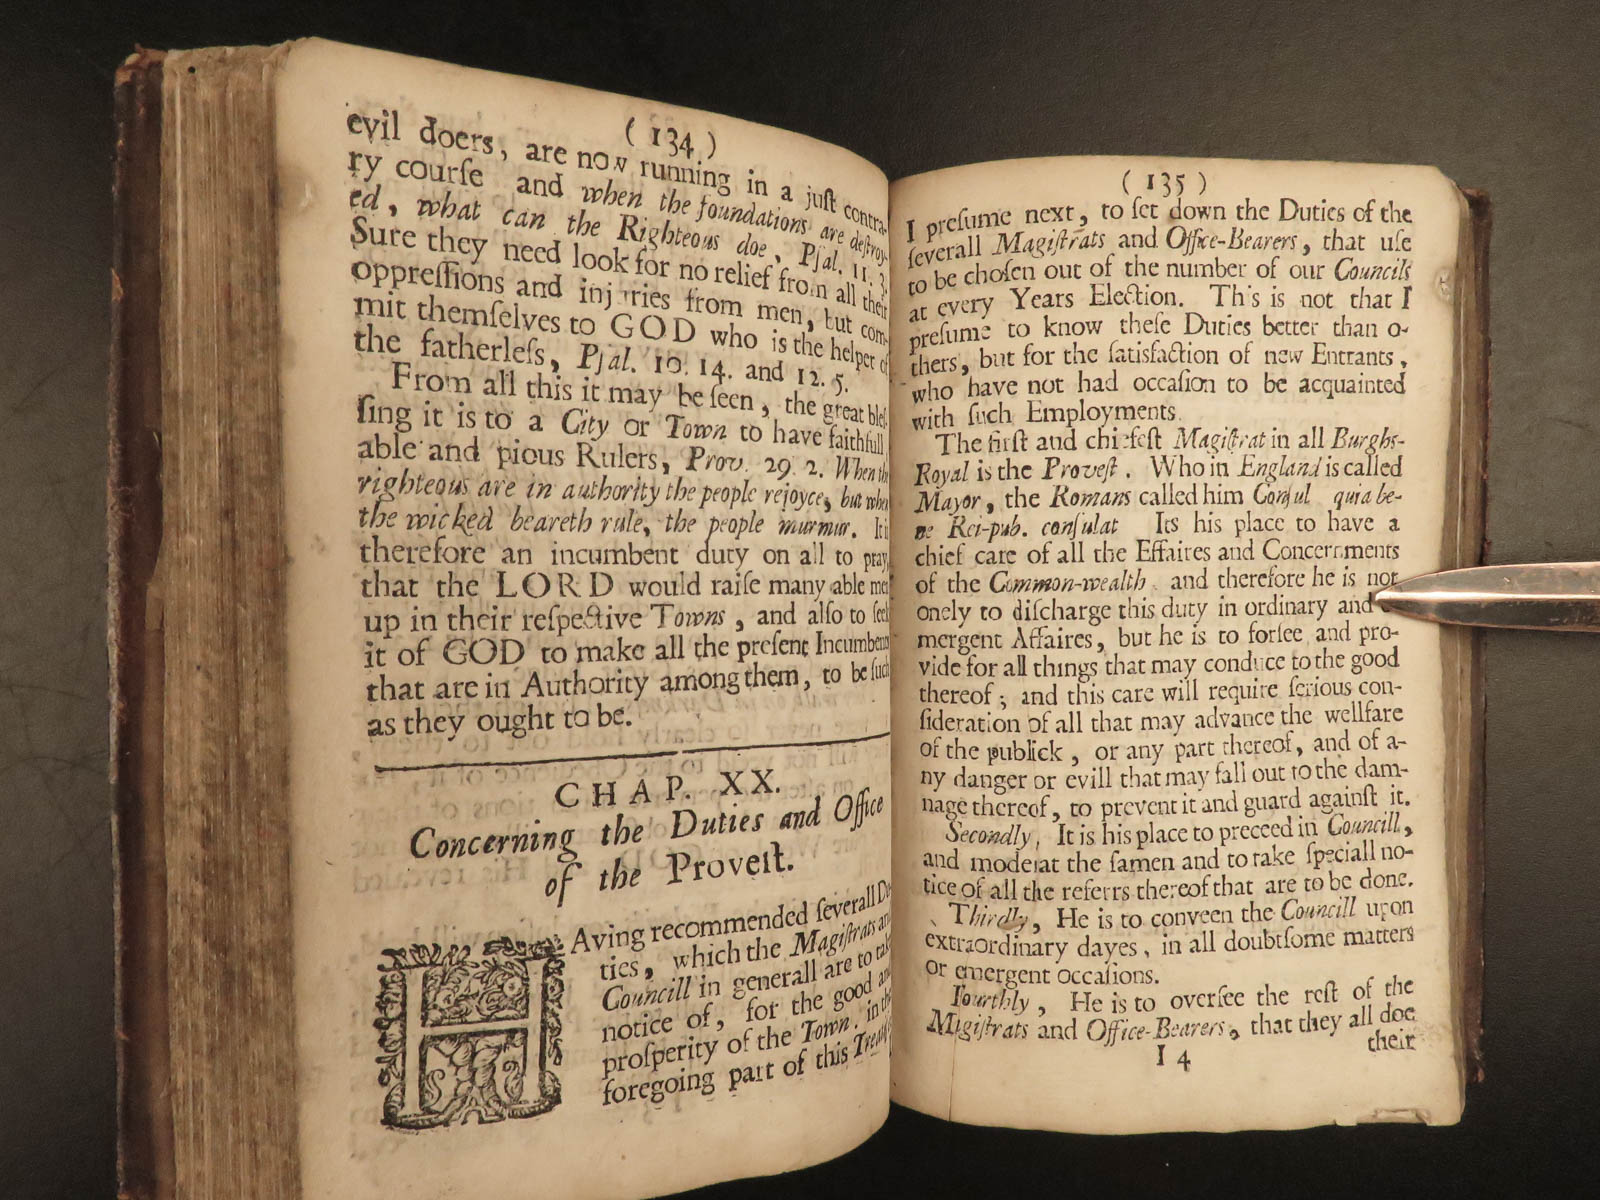 ( 134 )
evil doers, are now running in a juſt contra-
ry courſe and when the foundations are deſtroy-
ed, what can the Righteous doe, Pſal. 11. 3.
Sure they need look for no relief from all their
oppreſſions and injuries from men, but com-
mit themſelves to GOD who is the helper of
the fatherleſs, Pſal. 10. 14. and 12. 5.
From all this it may be ſeen, the great bleſ-
ſing it is to a City or Town to have faithfull
able and pious Rulers, Prov. 29. 2. When the
righteous are in authority the people rejoyce, but when
the wicked beareth rule, the people murmur. It is
therefore an incumbent duty on all to pray,
that the LORD would raiſe many able men
up in their reſpective Towns, and alſo to ſeek
it of GOD to make all the preſent Incumbents
that are in Authority among them, to be ſuch
as they ought to be.
CHAP. XX.
Concerning the Duties and Office
of the Proveſt.
HAving recommended ſeverall Du-
ties, which the Magiſtrats and
Councill in generall are to take
notice of, for the good and
proſperity of the Town, in the
foregoing part of this Treatiſe
( 135 )
I preſume next, to ſet down the Duties of the
ſeverall Magiſtrats and Office-Bearers, that uſe
to be choſen out of the number of our Councils
at every Years Election. This is not that I
preſume to know theſe Duties better than o-
thers, but for the ſatisfaction of new Entrants,
who have not had occaſion to be acquainted
with ſuch Employments.
The firſt and chiefeſt Magiſtrat in all Burghs-
Royal is the Proveſt. Who in England is called
Mayor, the Romans called him Conſul quia be-
ne Rei-pub. conſulat Its his place to have a
chief care of all the Effaires and Concernments
of the Common-wealth and therefore he is not
onely to diſcharge this duty in ordinary and
mergent Affaires, but he is to forſee and pro-
vide for all things that may conduce to the good
thereof; and this care will require ſerious con-
ſideration of all that may advance the wellfare
of the publick, or any part thereof, and of a-
ny danger or evill that may fall out to the dam-
nage thereof, to prevent it and guard againſt it.
Secondly, It is his place to preceed in Councill,
and moderat the ſamen and to take ſpeciall no-
tice of all the referrs thereof that are to be done.
Thirdly, He is to conveen the Councill upon
extraordinary dayes, in all doubtſome matters
or emergent occaſions.
Fourthly, He is to overſee the reſt of the
Migiſtrats and Office-Bearers, that they all doe
their
I 4